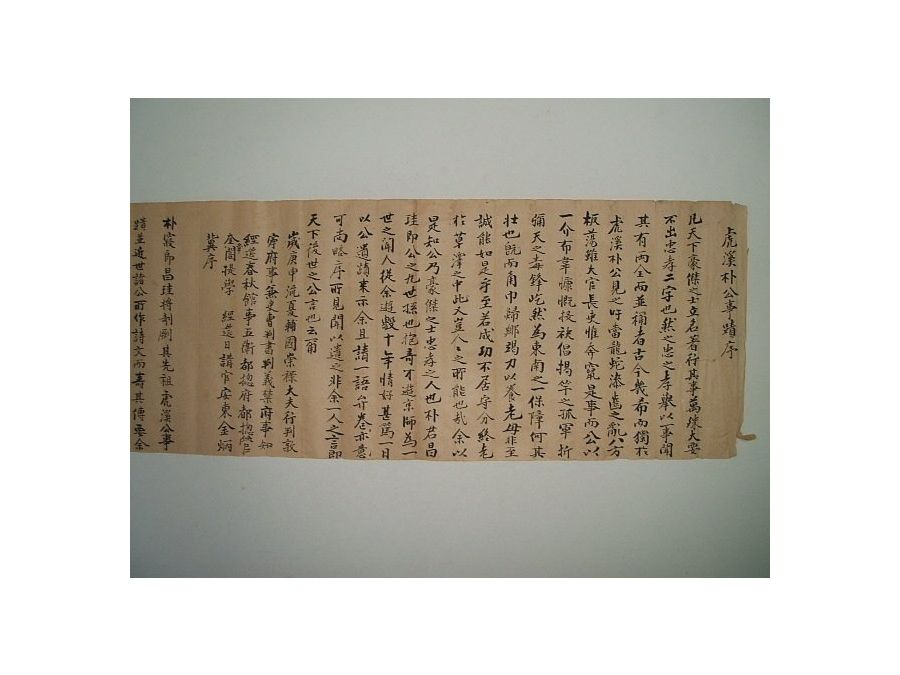 虎溪朴公事蹟序
凡天下豪傑之士立名著行其事萬殊大要
不出忠孝二字也然之忠之孝舉以事聞
其有兩全而並稱者古今幾希而獨於
虎溪朴公見之吁當龍蛇漆齒之亂八方
板蕩雖大官長吏惟奔竄是事而公以
一介布韋慷慨投袂倡揭竿之孤軍折
彌天之毒鋒屹然為東南之一保障何其
壯也既而角巾歸鄉竭力以養老母非至
誠能如是乎至若成功不居守分終老
於草澤之中此又豈人人之所能也哉余以
是知公乃豪傑之士忠孝之人也朴君昌
珪即公之九世孫也抱奇才遊京師為一
世之聞人從余遊數十年情好甚篤一日
以公遺蹟來示余且請一語弁卷亦意
可尚略序所見聞以遺之非余一人之言即
天下後世之公言也云爾
歲庚申流夏輔國崇祿大夫行判敦
寧府事兼吏曹判書判義禁府事知
經筵春秋館事五衛都摠府都摠管
奎章閣提學 經筵日講官安東金炳
冀序
朴寢郎昌珪將剞劂其先祖虎溪公事
蹟並近世諸公所作詩文而壽其傳要余